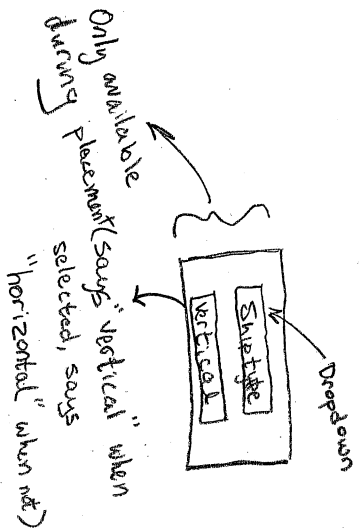 Dropdown
Shiptype
Vertical
Only available
during placement (says "vertical" when
selected, says
"horizontal" when not)